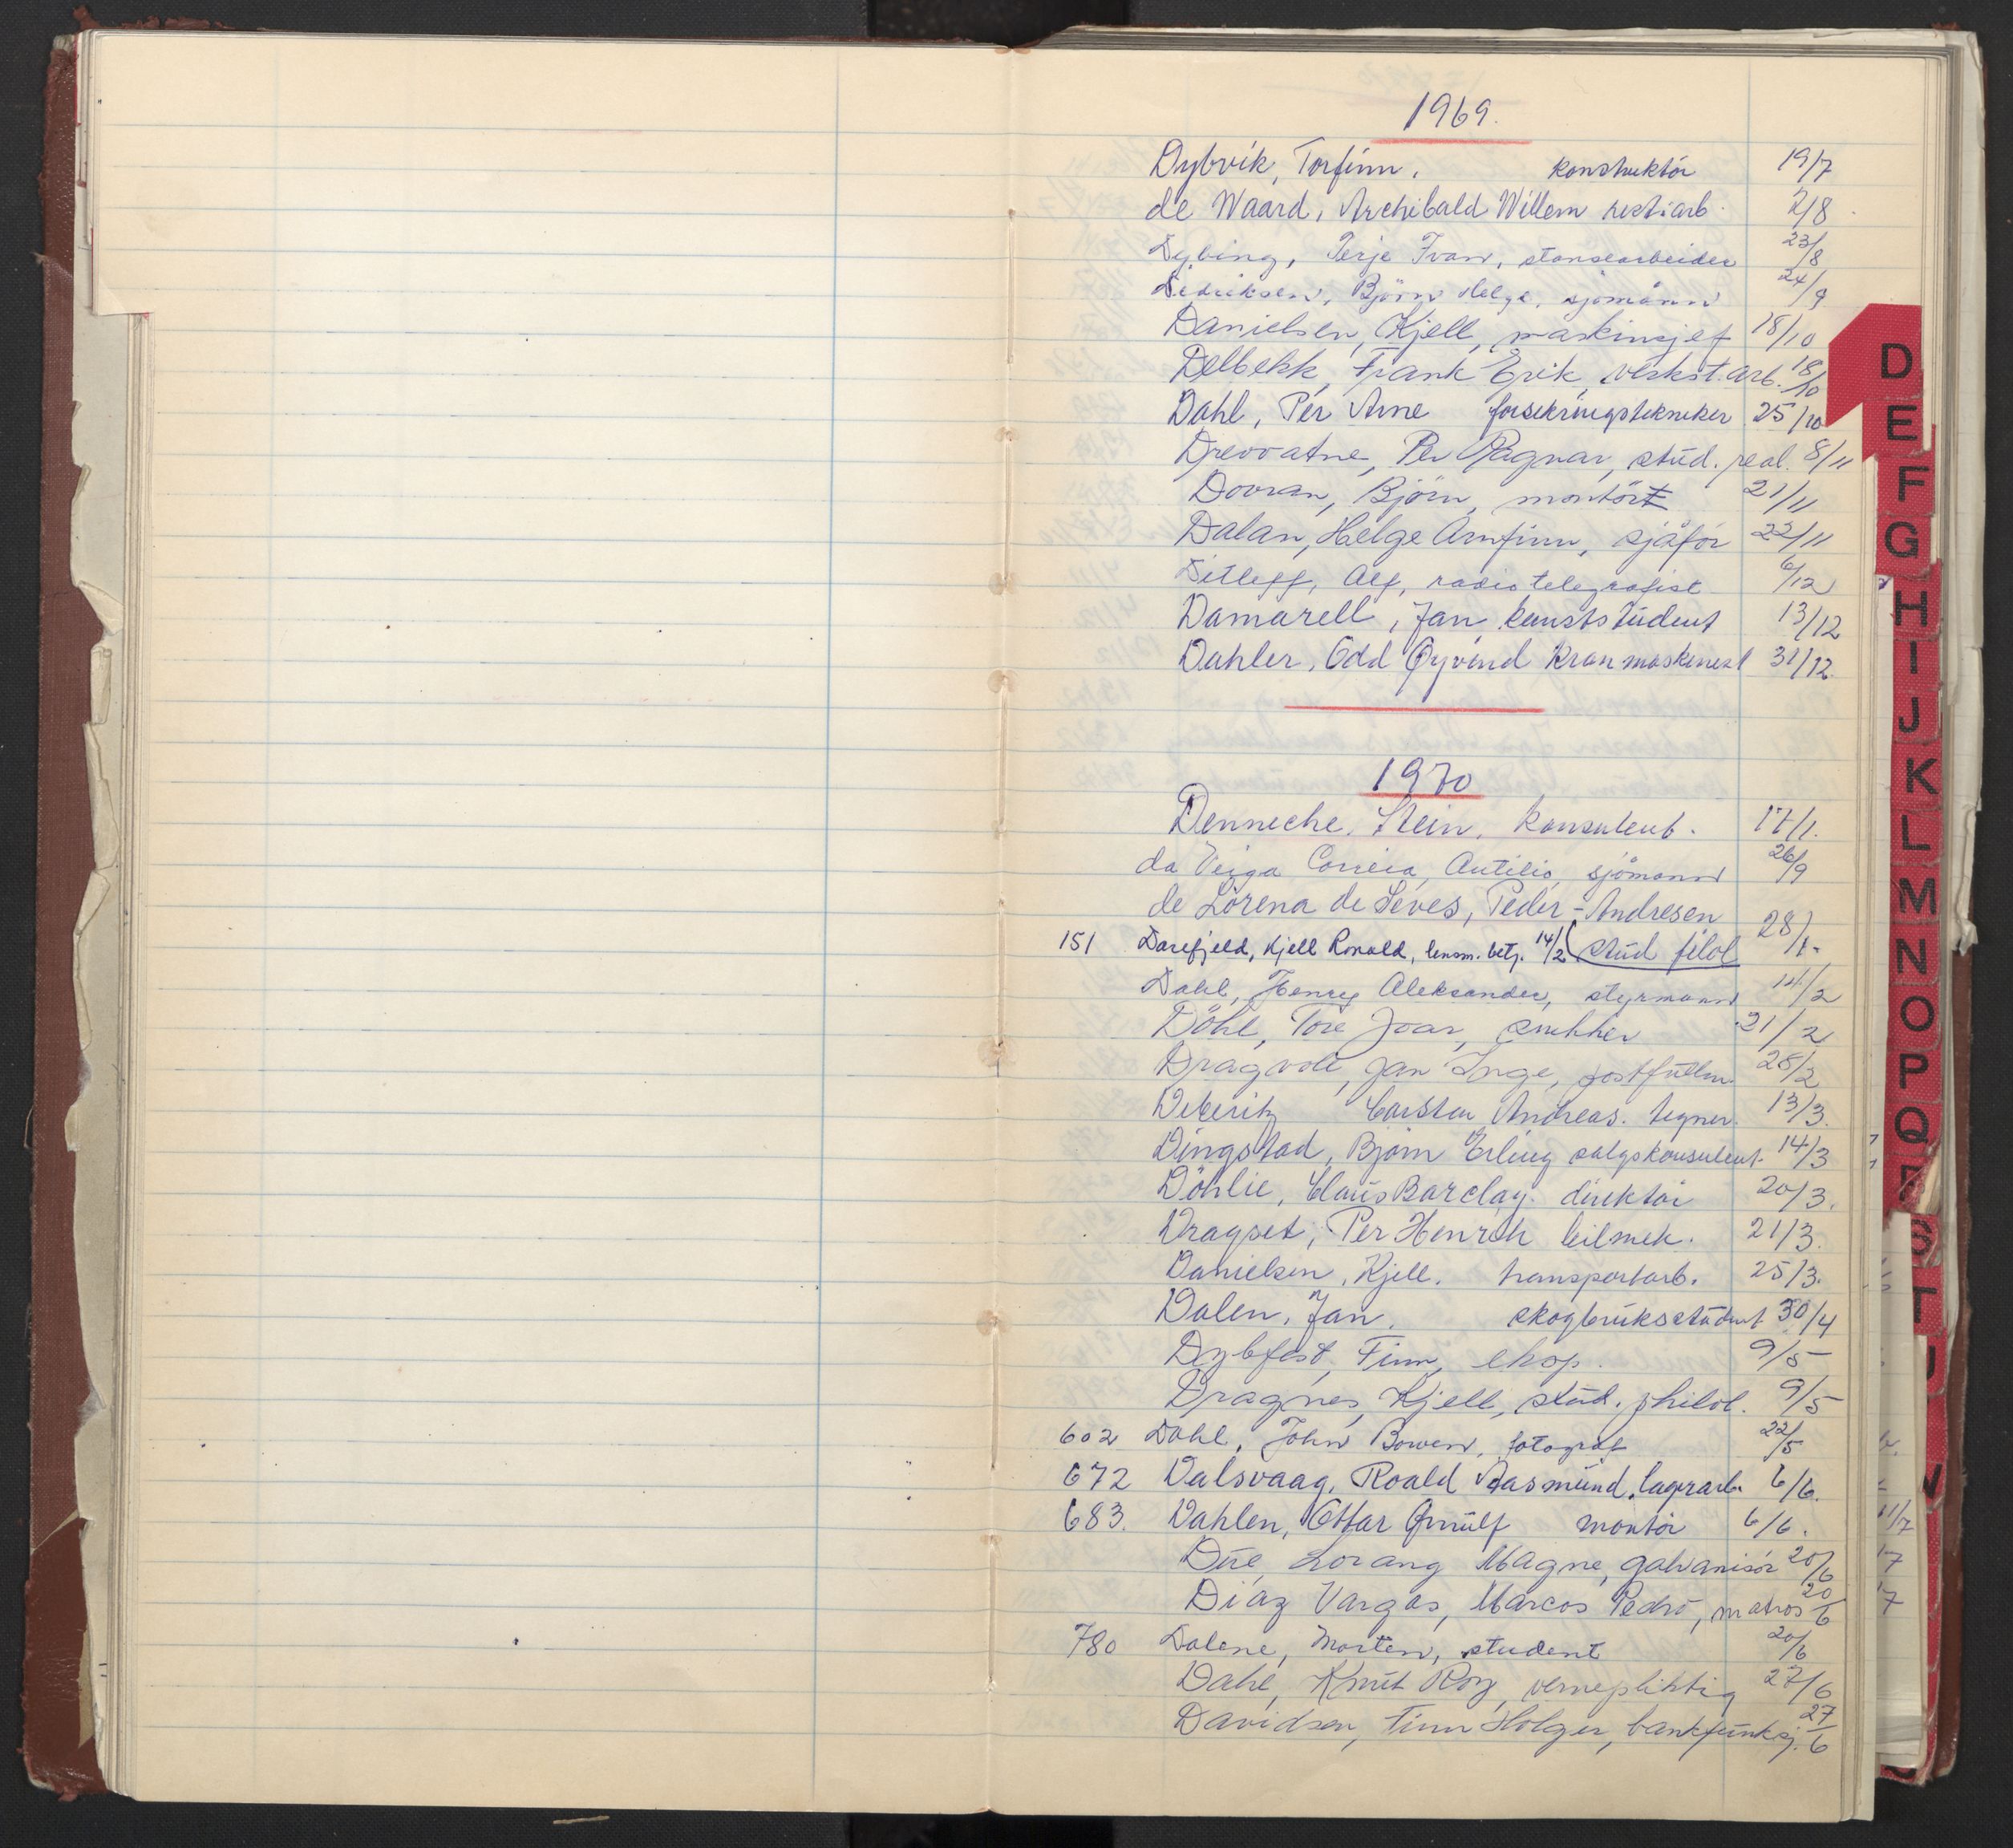 1969.
Dybvik, Torfinn. konstruktör 19/7
de Waard, Archibald Willem rest.arb. 2/8
Dybing, Terje Ivar, stansearbeider 23/8
Didriksen, Björn Helge, sjömann 24/9
Danielsen, Kjell, maskinsjef 18/10
Delbekk, Frank Erik, verkst.arb. 18/10
Dahl, Per Arne forsikringstekniker 25/10
Drevvatne, Per Ragnar, stud. real. 8/11
Dovran, Björn, montör 21/11
Dalan, Helge Arnfinn, sjåför 22/11
Ditleff, Alf, radiotelegrafist 6/12
Damarell, Jan kunststudent 13/12
Dahler, Odd Øyvind Kranmaskinist 31/12.
1970
Denneche, Stein, konsulent. 17/1.
da Veiga Correia, Antilio, sjömann 26/9
de Lorena de Seves, Peder-Andresen
151 Darefjeld, Kjell Ronald, lensm. betj. 14/2 (stud filol 28/1.
Dahl, Henry Aleksander, styrmann 14/2
Döhl, Tore Joar, snekker 21/2
Dragvoll, Jan Inge, postfullm. 28/2
Deberitz Carsten Andreas. tegner. 13/3.
Dingstad, Björn Erling salgskonsulent. 14/3
Döhlie, Claus Barclay. direktör 20/3.
Dragset, Per Henrik bilmek. 21/3.
Danielsen, Kjell. transportarb. 25/3.
Dalen, Jan. skogbruksstudent 30/4
Dybfest, Finn, eksp. 9/5
Dragnes, Kjell, stud. philol. 9/5
602 Dahl, John Bowen, fotograf 22/5
672 Dalsvaag, Roald Aasmund, lagerarb. 6/6.
683. Dahlen, Ottar Ørnulf montör 6/6.
Due, Lorang Magne, galvanisör 20/6
Diaz Vargas, Marcos Pedro, matros 20/6
780 Dalene, Morten, student 20/6
Dahl, Knut Roy, vernepliktig 27/6
Davidsen, Finn Holger, bankfunksj. 27/6
D
E
F
G
H
I
J
K
L
M
N
O
P
Q
R
S
T
U
V